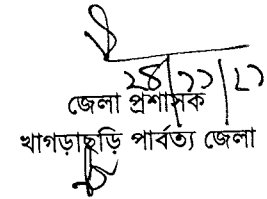 ২৪/১১/২১
জেলা প্রশাসক
খাগড়াছড়ি পার্বত্য জেলা